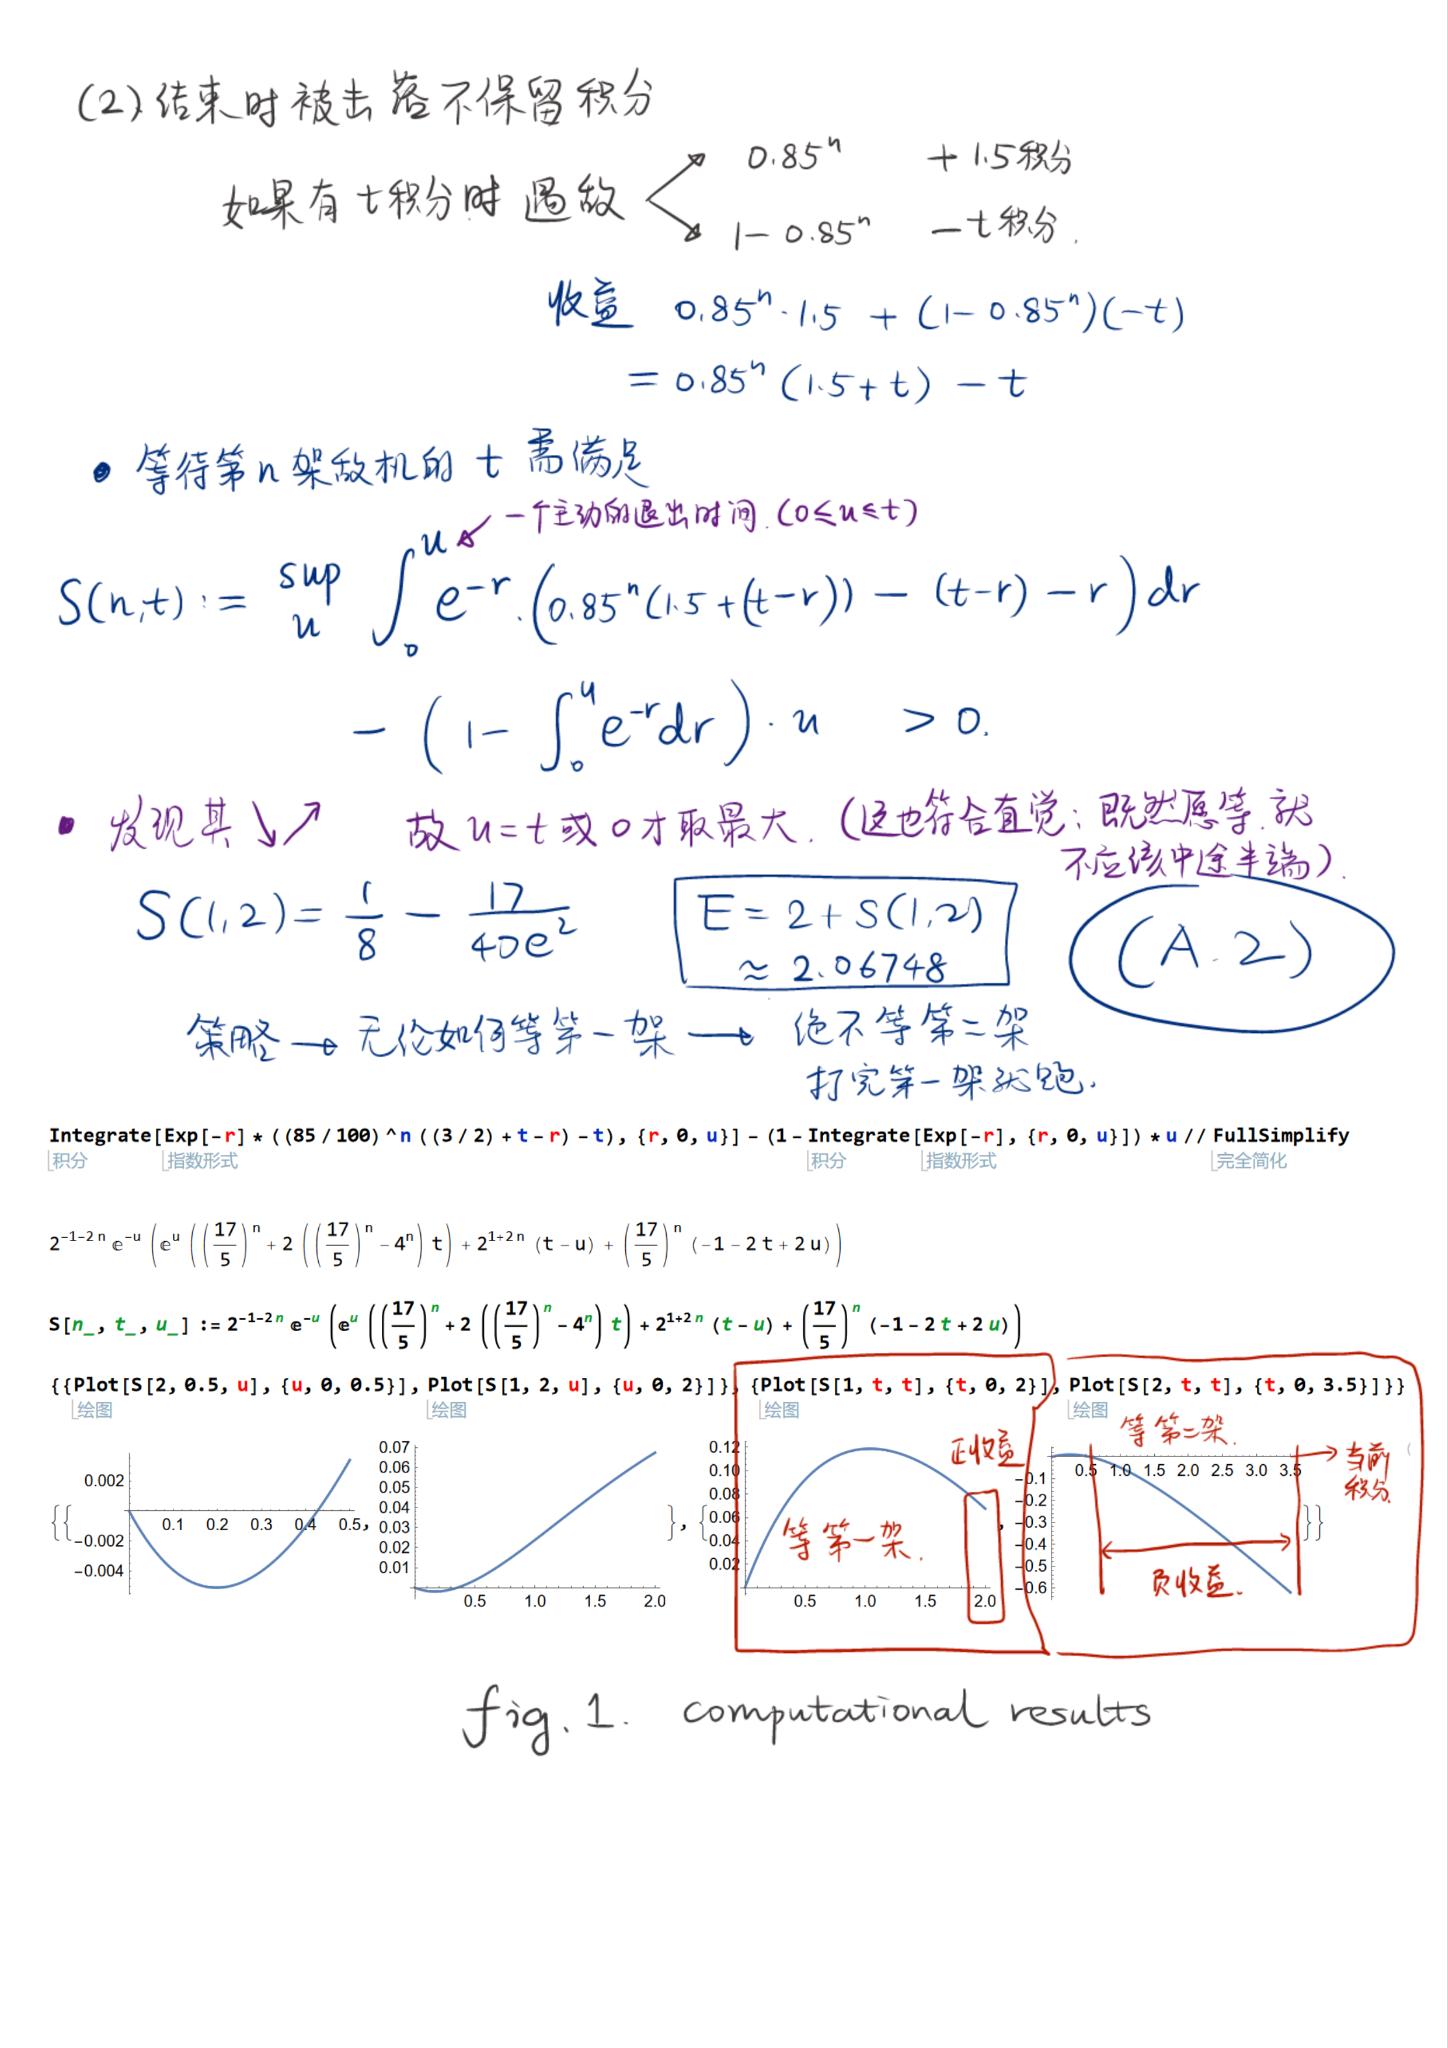 (2) 结束时被击落不保留积分
如果有 t 积分时遇敌
0.85ⁿ + 1.5积分
1 - 0.85ⁿ - t积分.
收益 0.85ⁿ·1.5 + (1-0.85ⁿ)(-t)
= 0.85ⁿ (1.5+t) - t
• 等待第n架敌机的 t 需满足
一个主动的退出时间. (0≤u≤t)
S(n,t) := sup_u ∫₀ᵘ e^{-r}·(0.85ⁿ(1.5+(t-r)) - (t-r) - r) dr
- (1 - ∫₀ᵘ e^{-r}dr)·u > 0.
• 发现其 ↘↗ 故 u=t 或 0 才取最大. (这也符合直觉: 既然愿等, 就
不应该中途半端).
S(1,2) = 1/8 - 17/(40e²)
E = 2+S(1,2)
≈ 2.06748
(A.2)
策略 → 无论如何等第一架 → 绝不等第二架
打完第一架就跑.
Integrate[Exp[-r] * ((85 / 100) ^ n ((3 / 2) + t - r) - t), {r, 0, u}] - (1 - Integrate[Exp[-r], {r, 0, u}]) * u // FullSimplify
积分 指数形式 积分 指数形式 完全简化
2^{-1-2 n} e^{-u} (e^u ((17/5)^n + 2 ((17/5)^n - 4^n) t) + 2^{1+2 n} (t - u) + (17/5)^n (-1 - 2 t + 2 u))
S[n_, t_, u_] := 2^{-1-2 n} e^{-u} (e^u ((17/5)^n + 2 ((17/5)^n - 4^n) t) + 2^{1+2 n} (t - u) + (17/5)^n (-1 - 2 t + 2 u))
{{Plot[S[2, 0.5, u], {u, 0, 0.5}], Plot[S[1, 2, u], {u, 0, 2}]}, {Plot[S[1, t, t], {t, 0, 2}], Plot[S[2, t, t], {t, 0, 3.5}]}}
绘图 绘图 绘图 绘图
{{
0.002
-0.002
-0.004
0.1 0.2 0.3 0.4 0.5
,
0.07
0.06
0.05
0.04
0.03
0.02
0.01
0.5 1.0 1.5 2.0
}, {
0.12
0.10
0.08
0.06
0.04
0.02
0.5 1.0 1.5 2.0
正收益
等第一架.
,
等第二架.
0.5 1.0 1.5 2.0 2.5 3.0 3.5
-0.1
-0.2
-0.3
-0.4
-0.5
-0.6
当前
积分.
负收益.
}}
fig. 1. computational results